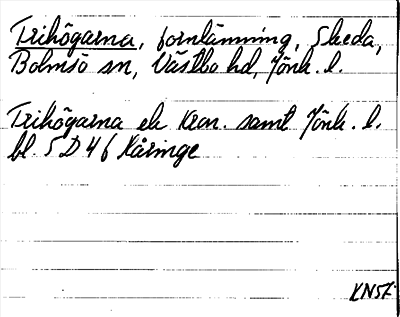 Trihögarna, fornlämning, Skeda,
Bolmsö sn, Västbo hd, Jönk. l.
Trihögarna ek Kron. samt Jönk. l.
bl. 5D 4 6 Kåringe
KN57